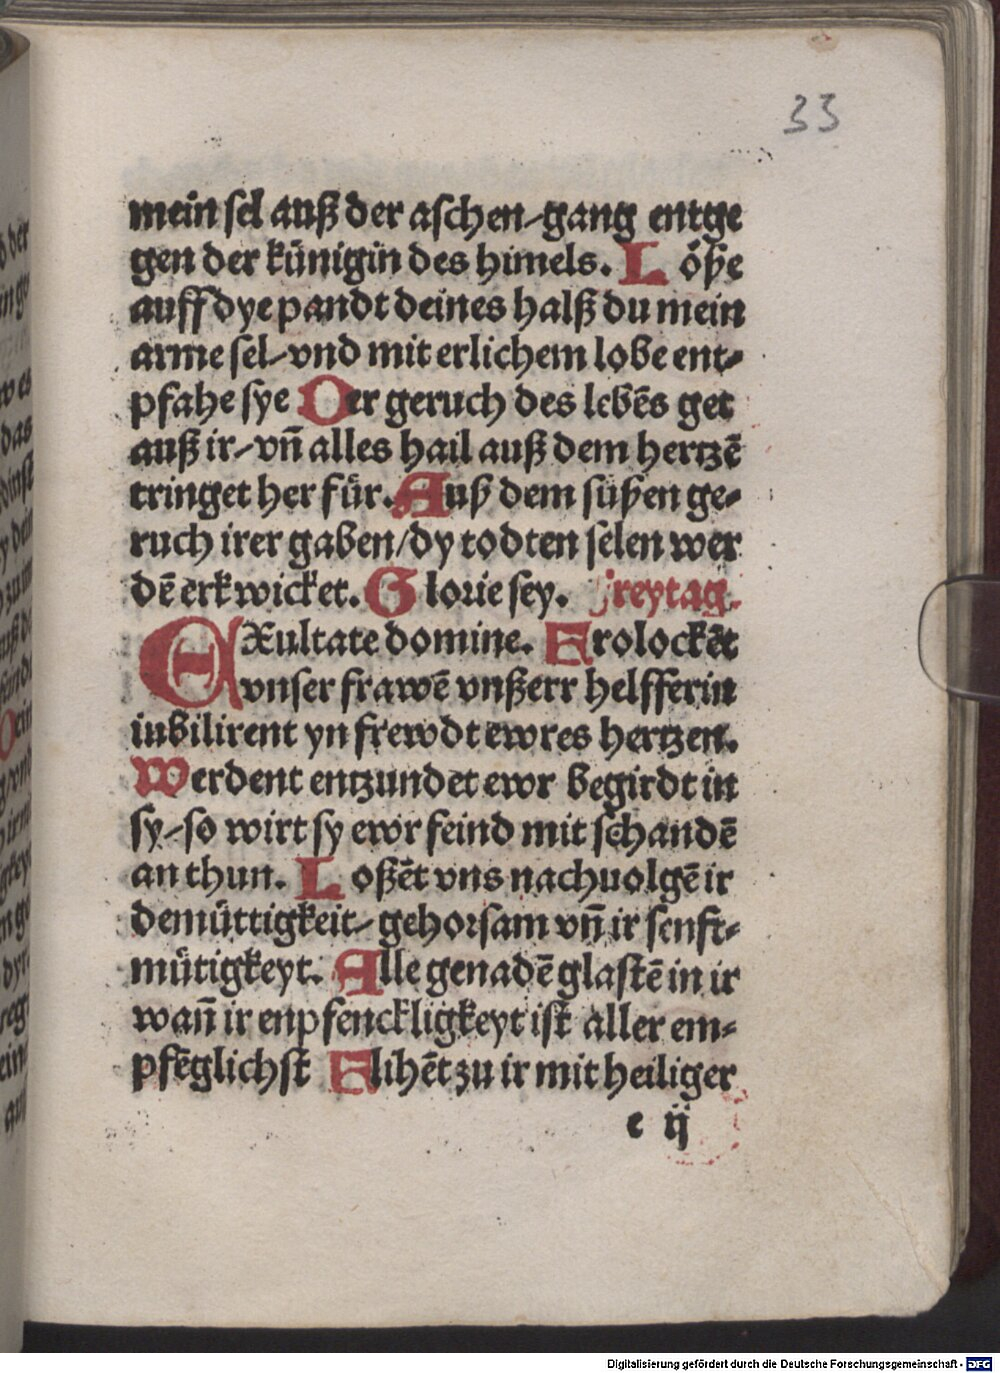 33
mein sel auß der aschen/ gang entge
gen der künigin des himels. Löße
auff dye pandt deines halß du mein
arme sel/ vnd mit erlichem lobe ent⸗
pfahe sye Der geruch des lebēs get
auß ir/ vñ alles hail auß dem hertzē
tringet her für. Auß dem süßen ge⸗
ruch irer gaben/ dy todten selen wer
dē erkwicket. Glorie sey. Freytag.
EXultate domine. Frolockēt
vnser frawē vnßerr helfferin
iubilirent yn frewdt ewres hertzen.
Werdent entzundet ewr begirdt in
sy/ so wirt sy ewr feind mit schandē
an thun. Loßēt vns nachuolgē ir
demüttigkeit/ gehorsam vñ ir senft⸗
mütigkeyt. Alle genadē glastē in ir
wañ ir enpfenckligkeyt ist aller em⸗
pfēglichst Flihēt zu ir mit heiliger
e ij
Digitalisierung gefördert durch die Deutsche Forschungsgemeinschaft - DFG